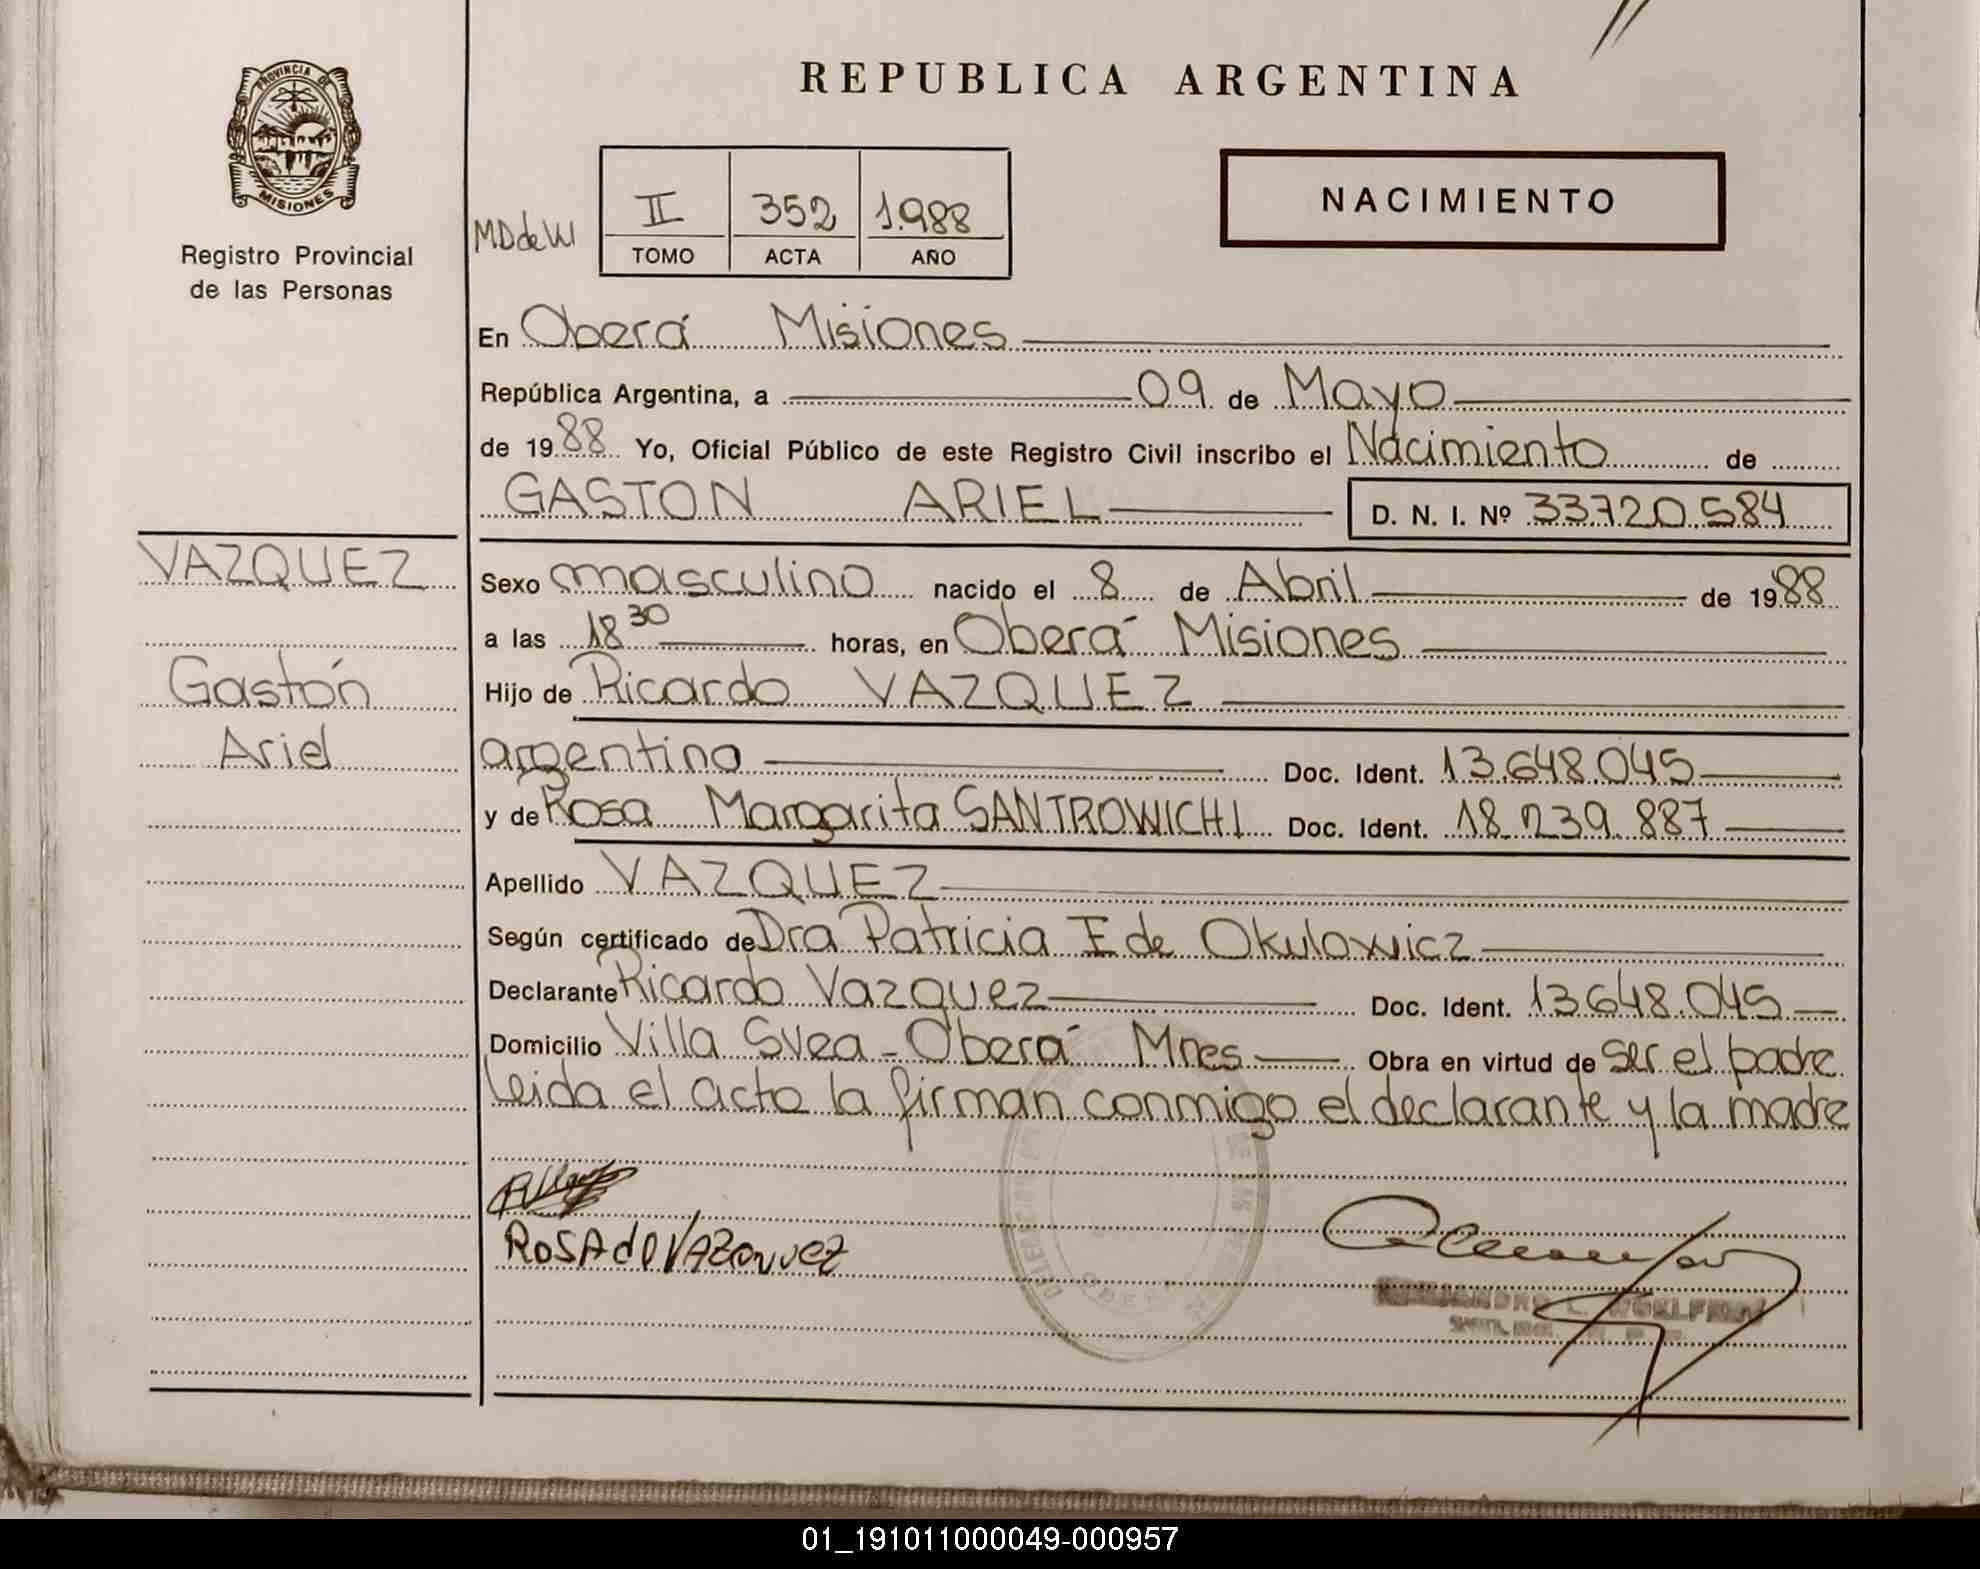 REPUBLICA ARGENTINA
PROVINCIA DE
MISIONES
Registro Provincial
de las Personas
NACIMIENTO
MDdeW
II 352 1.988
TOMO ACTA AÑO
En Oberá Misiones
República Argentina, a 09 de Mayo
de 1988 Yo, Oficial Público de este Registro Civil inscribo el Nacimiento de
GASTON ARIEL D. N. I. Nº 33.720.584
VAZQUEZ
Gastón
Ariel
Sexo masculino nacido el 8 de Abril de 1988
a las 18 30 horas, en Oberá Misiones
Hijo de Ricardo VAZQUEZ
argentino Doc. Ident. 13.648.045
y de Rosa Margarita SANTROWICHI Doc. Ident. 18.239.887
Apellido VAZQUEZ
Según certificado de Dra Patricia F de Okulowicz
Declarante Ricardo Vazquez Doc. Ident. 13.648.045
Domicilio Villa Svea - Oberá Mnes Obra en virtud de ser el padre
leida el acta la firman conmigo el declarante y la madre
ROSA de VAZQUEZ
01_191011000049-000957